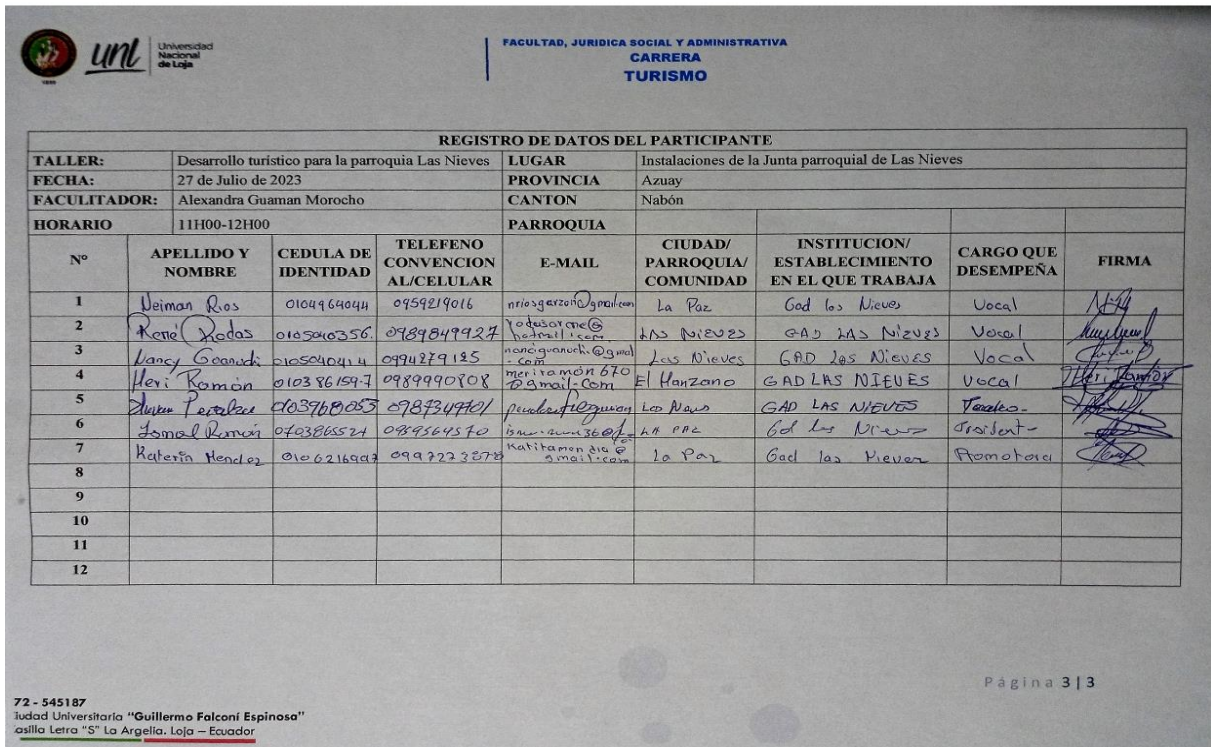 unl Universidad Nacional de Loja
FACULTAD, JURIDICA SOCIAL Y ADMINISTRATIVA
CARRERA
TURISMO
REGISTRO DE DATOS DEL PARTICIPANTE
TALLER: Desarrollo turístico para la parroquia Las Nieves LUGAR Instalaciones de la Junta parroquial de Las Nieves
FECHA: 27 de Julio de 2023 PROVINCIA Azuay
FACULITADOR: Alexandra Guaman Morocho CANTON Nabón
HORARIO 11H00-12H00 PARROQUIA
Nº APELLIDO Y NOMBRE CEDULA DE IDENTIDAD TELEFENO CONVENCION AL/CELULAR E-MAIL CIUDAD/ PARROQUIA/ COMUNIDAD INSTITUCION/ ESTABLECIMIENTO EN EL QUE TRABAJA CARGO QUE DESEMPEÑA FIRMA
1 Neiman Rios 0104964044 0959219016 nriosgarzon@gmail.com La Paz Gad las Nieves Vocal
2 René Rodas 0105040356. 0989849927 rodasorene@hotmail.com LAS NIEVES GAD LAS NIEVES Vocal
3 Nancy 0105040414 0994279185 Las Nieves GAD Las Nieves Vocal
4 Meri Ramón 010386159-7 0989990808 meriramon670@gmail.com El Manzano GAD LAS NIEVES Vocal
5 0103968053 0987349701 GAD LAS NIEVES
6 Ismal Ramón 0703865521 0959564570 LA PAZ
7 Katerin Mendez 0997223878 Katitamendia@gmail.com La Paz Gad las Nieves Promotora
8
9
10
11
12
Página 3|3
72 - 545187
iudad Universitaria "Guillermo Falconí Espinosa"
asilla Letra "S" La Argelia. Loja – Ecuador